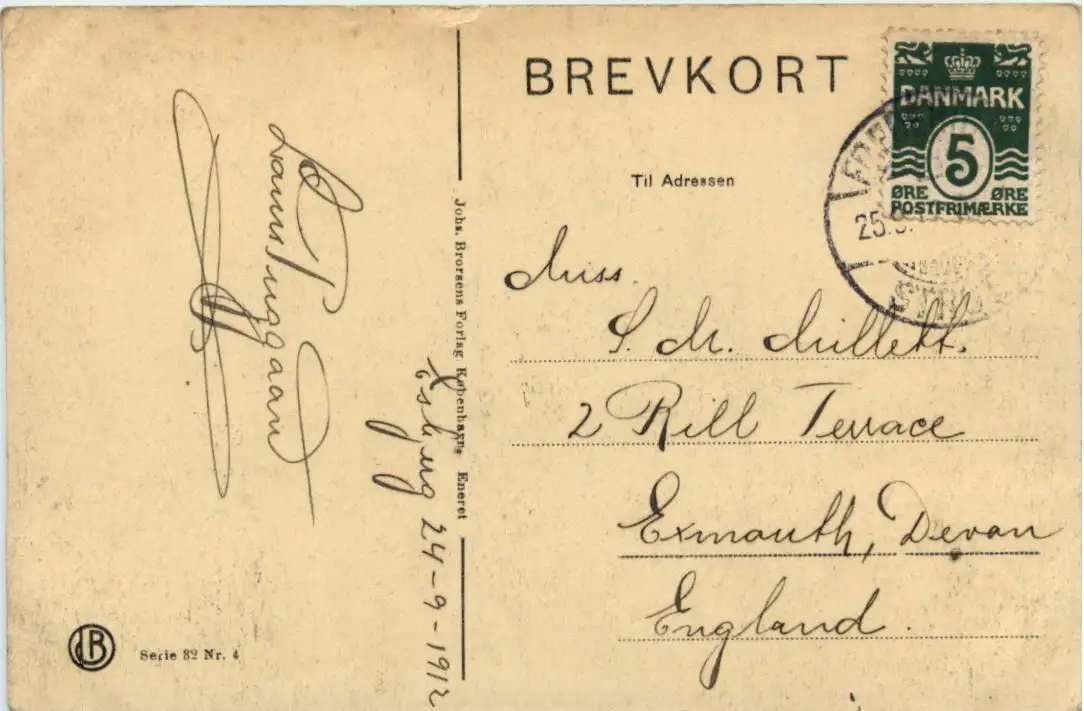 BREVKORT
DANMARK
5
ØRE ØRE
POSTFRIMÆRKE
25.9.
Til Adressen
Miss.
S. M. Millett.
2 Rill Terrace
Exmouth, Devon
England.
Johs. Brorsens Forlag København. Eneret
24-9-1912
CJB
Serie 82 Nr. 4